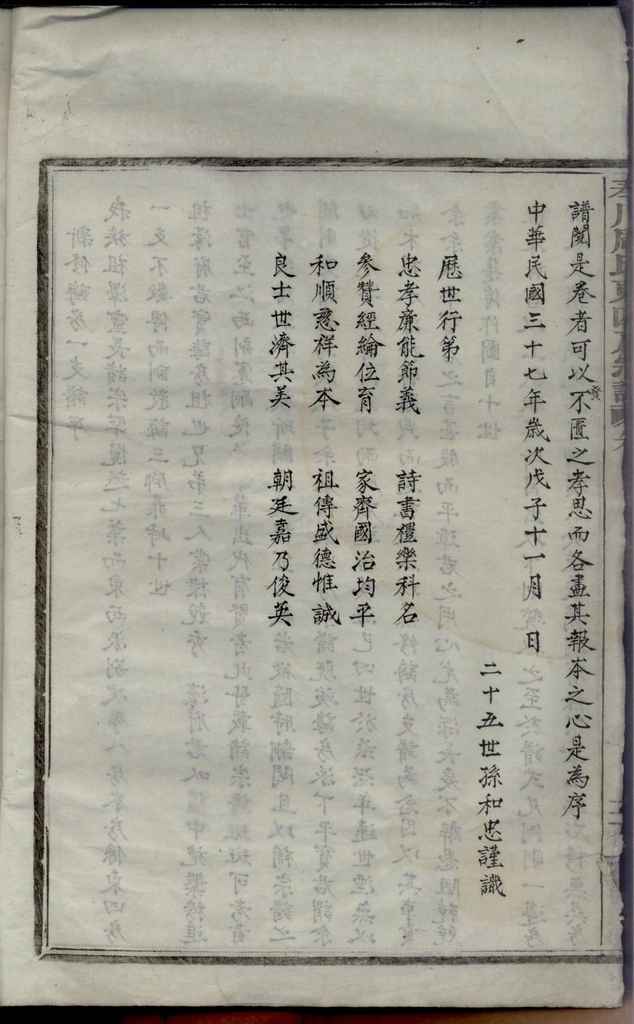 譜閱是卷者可以發不匱之孝思而各盡其報本之心是為序
中華民國三十七年歲次戊子十一月 日
二十五世孫和忠謹識
歷世行第
忠孝廉能節義 詩書禮樂科名
參贊經綸位育 家齊國治均平
和順慈祥為本 祖傳盛德惟誠
良士世濟其美 朝廷嘉乃俊英